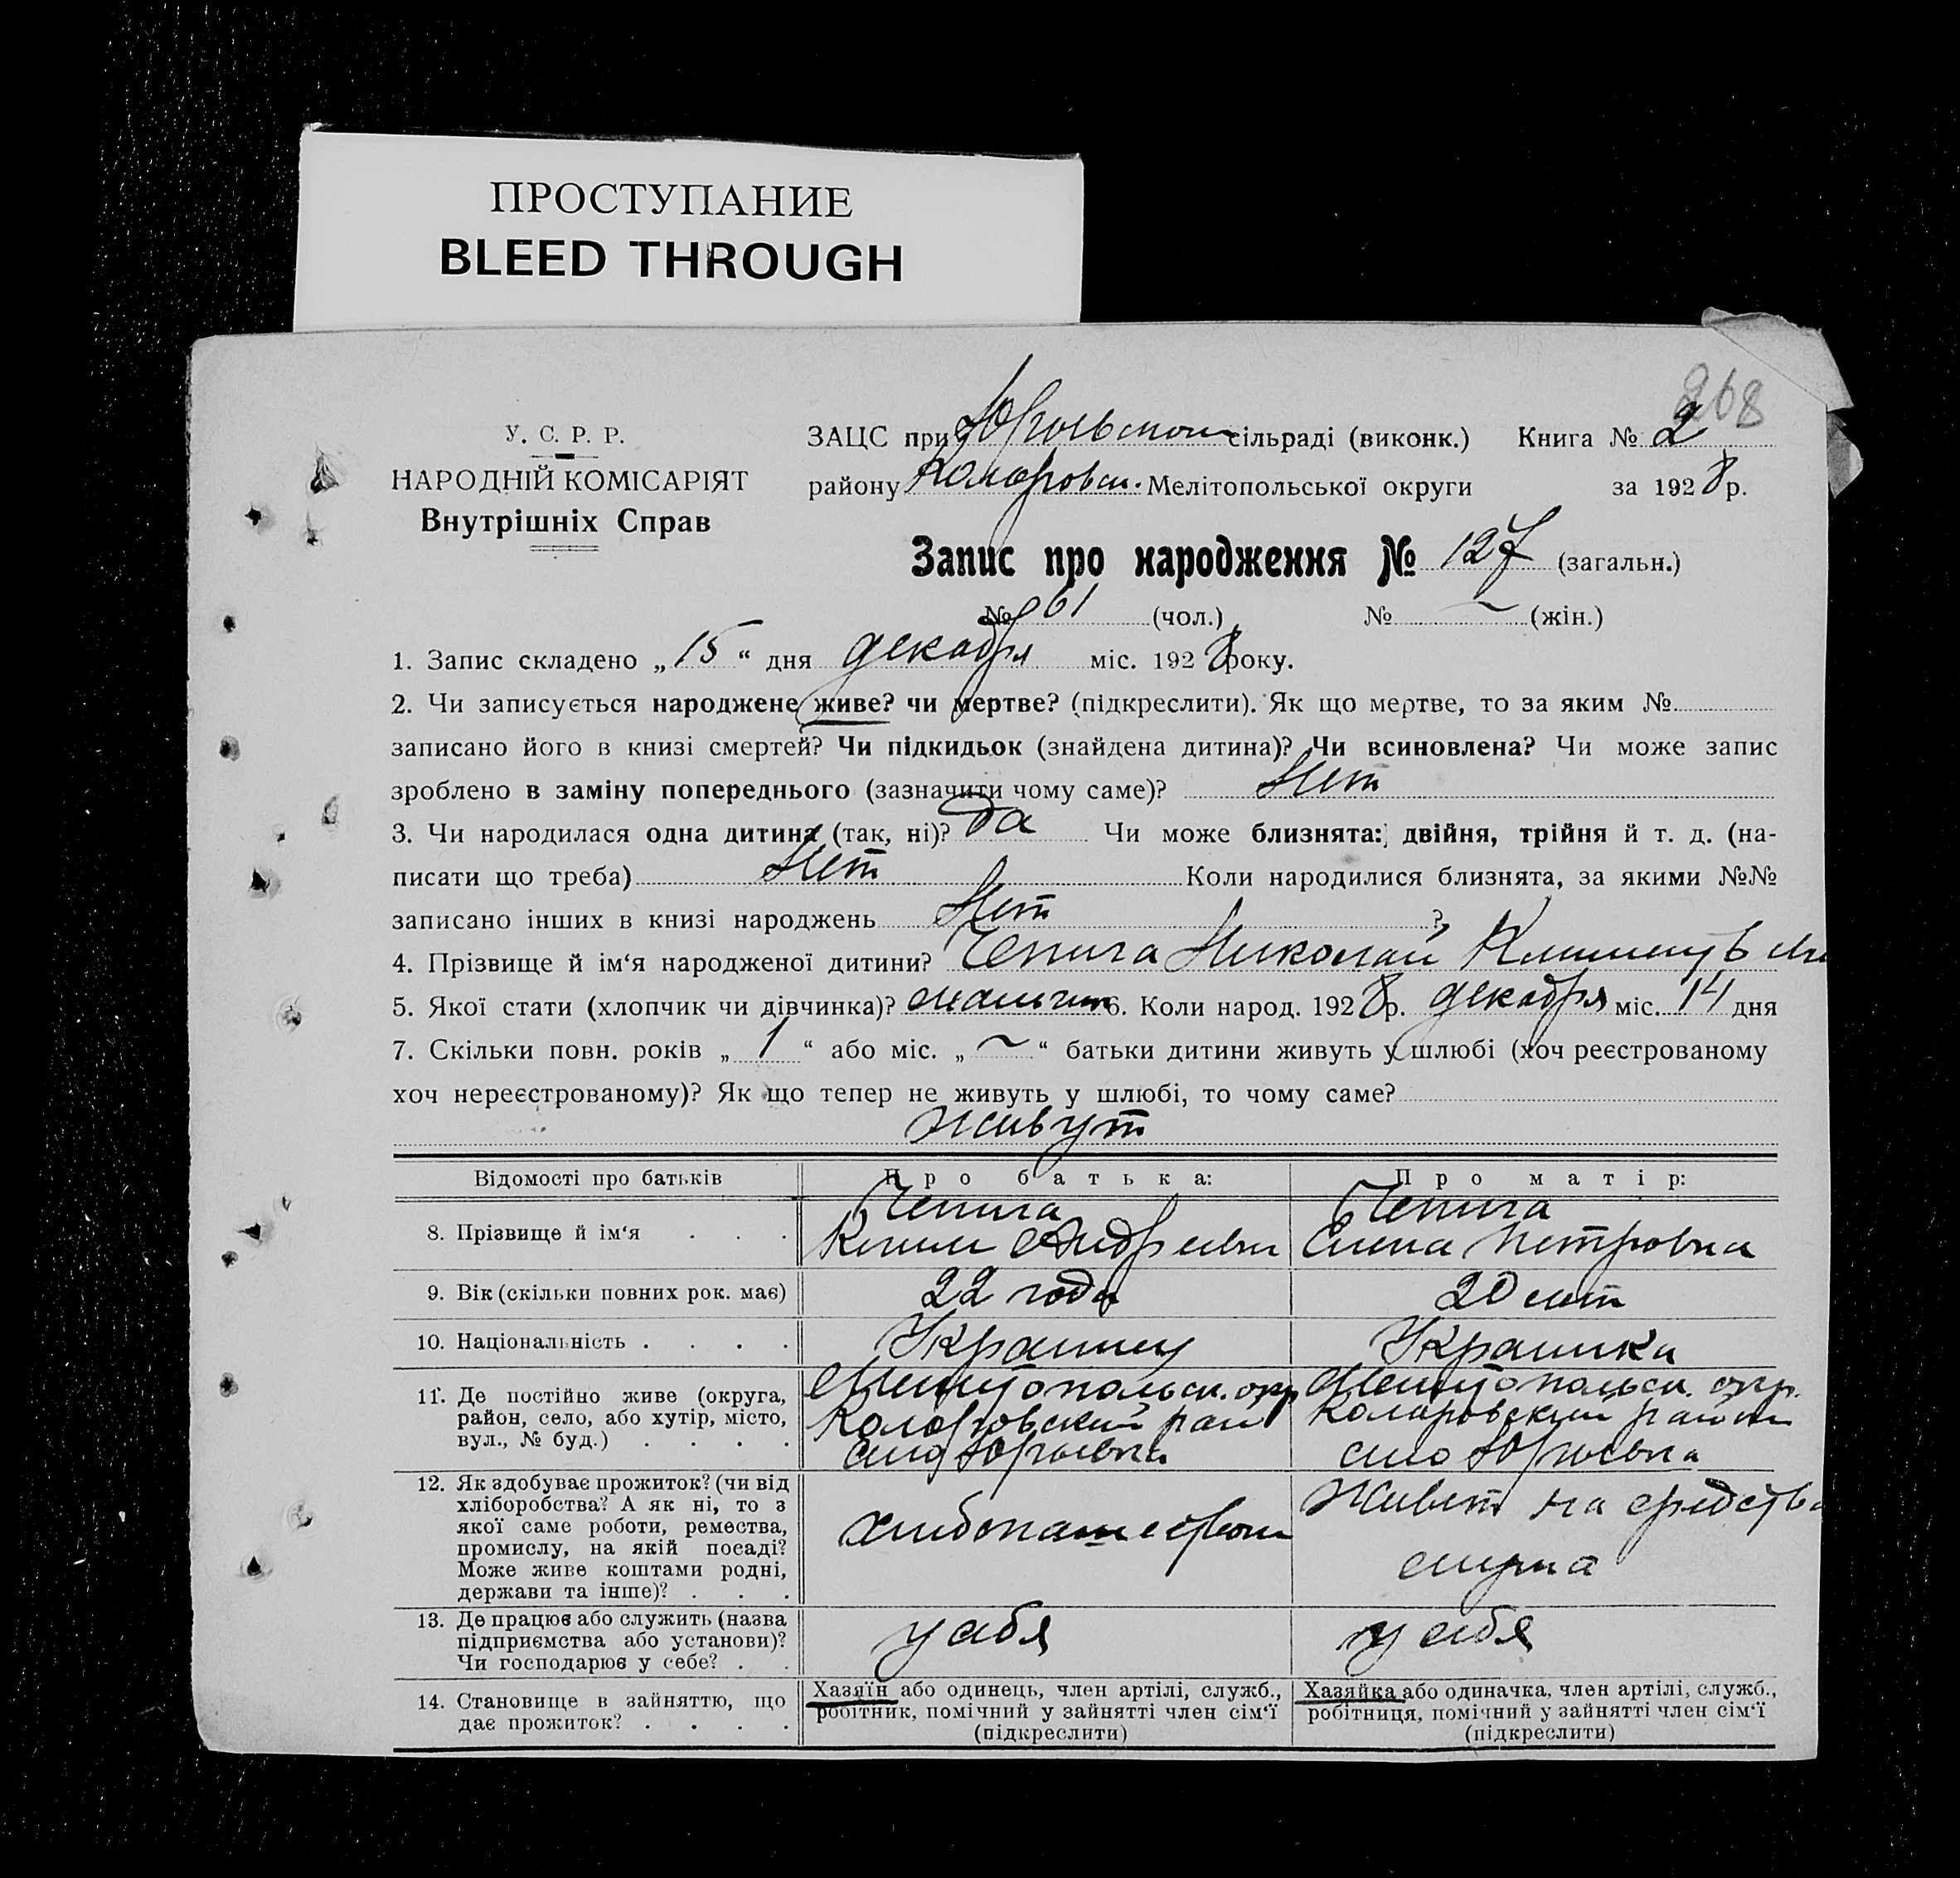 ПРОСТУПАНИЕ
BLEED THROUGH
268
У. С. Р. Р.
НАРОДНІЙ КОМІСАРІЯТ
Внутрішніх Справ
ЗАЦС при Юрьевском сільраді (виконк.) Книга № 2
району Коларовск. Мелітопольської округи за 1928 р.
Запис про народження № 127 (загальн.)
№ 61 (чол.) № — (жін.)
1. Запис складено „15“ дня декабря міс. 1928 року.
2. Чи записується народжене живе? чи мертве? (підкреслити). Як що мертве, то за яким №
записано його в книзі смертей? Чи підкидьок (знайдена дитина)? Чи всиновлена? Чи може запис
зроблено в заміну попереднього (зазначити чому саме)? Нет
3. Чи народилася одна дитина (так, ні)? Да Чи може близнята: двійня, трійня й т. д. (на-
писати що треба) Нет Коли народилися близнята, за якими №№
записано інших в книзі народжень Нет ?
4. Прізвище й ім‘я народженої дитини? Чепига Николай
5. Якої стати (хлопчик чи дівчинка)? мальчик 6. Коли народ. 1928 р. декабря міс. 14 дня
7. Скільки повн. років „1“ або міс. „—“ батьки дитини живуть у шлюбі (хоч реєстрованому
хоч нереєстрованому)? Як що тепер не живуть у шлюбі, то чому саме?
живут
Відомості про батьків Про батька: Про матір:
8. Прізвище й ім‘я . . . Чепига
Клим Андреевич
Чепига
Елена Петровна
9. Вік (скільки повних рок. має) 22 года 20 лет
10. Національність . . . . Украинец Украинка
11. Де постійно живе (округа,
район, село, або хутір, місто,
вул., № буд.) . . . .
Мелитопольск. окр
Коларовский район
село Юрьевка
Мелитопольск. окр.
Коларовский район
село Юрьевка
12. Як здобуває прожиток? (чи від
хліборобства? А як ні, то з
якої саме роботи, ремества,
промислу, на якій посаді?
Може живе коштами родні,
держави та інше)? . . .
хлебопашеством
Живет на средства
мужа
13. Де працює або служить (назва
підприємства або установи)?
Чи господарює у себе? . .
у себя
у себя
14. Становище в зайняттю, що
дає прожиток? . . . .
Хазяїн або одинець, член артілі, служб.,
робітник, помічний у зайнятті член сім‘ї
(підкреслити)
Хазяйка або одиначка, член артілі, служб.,
робітниця, помічний у зайнятті член сім‘ї
(підкреслити)